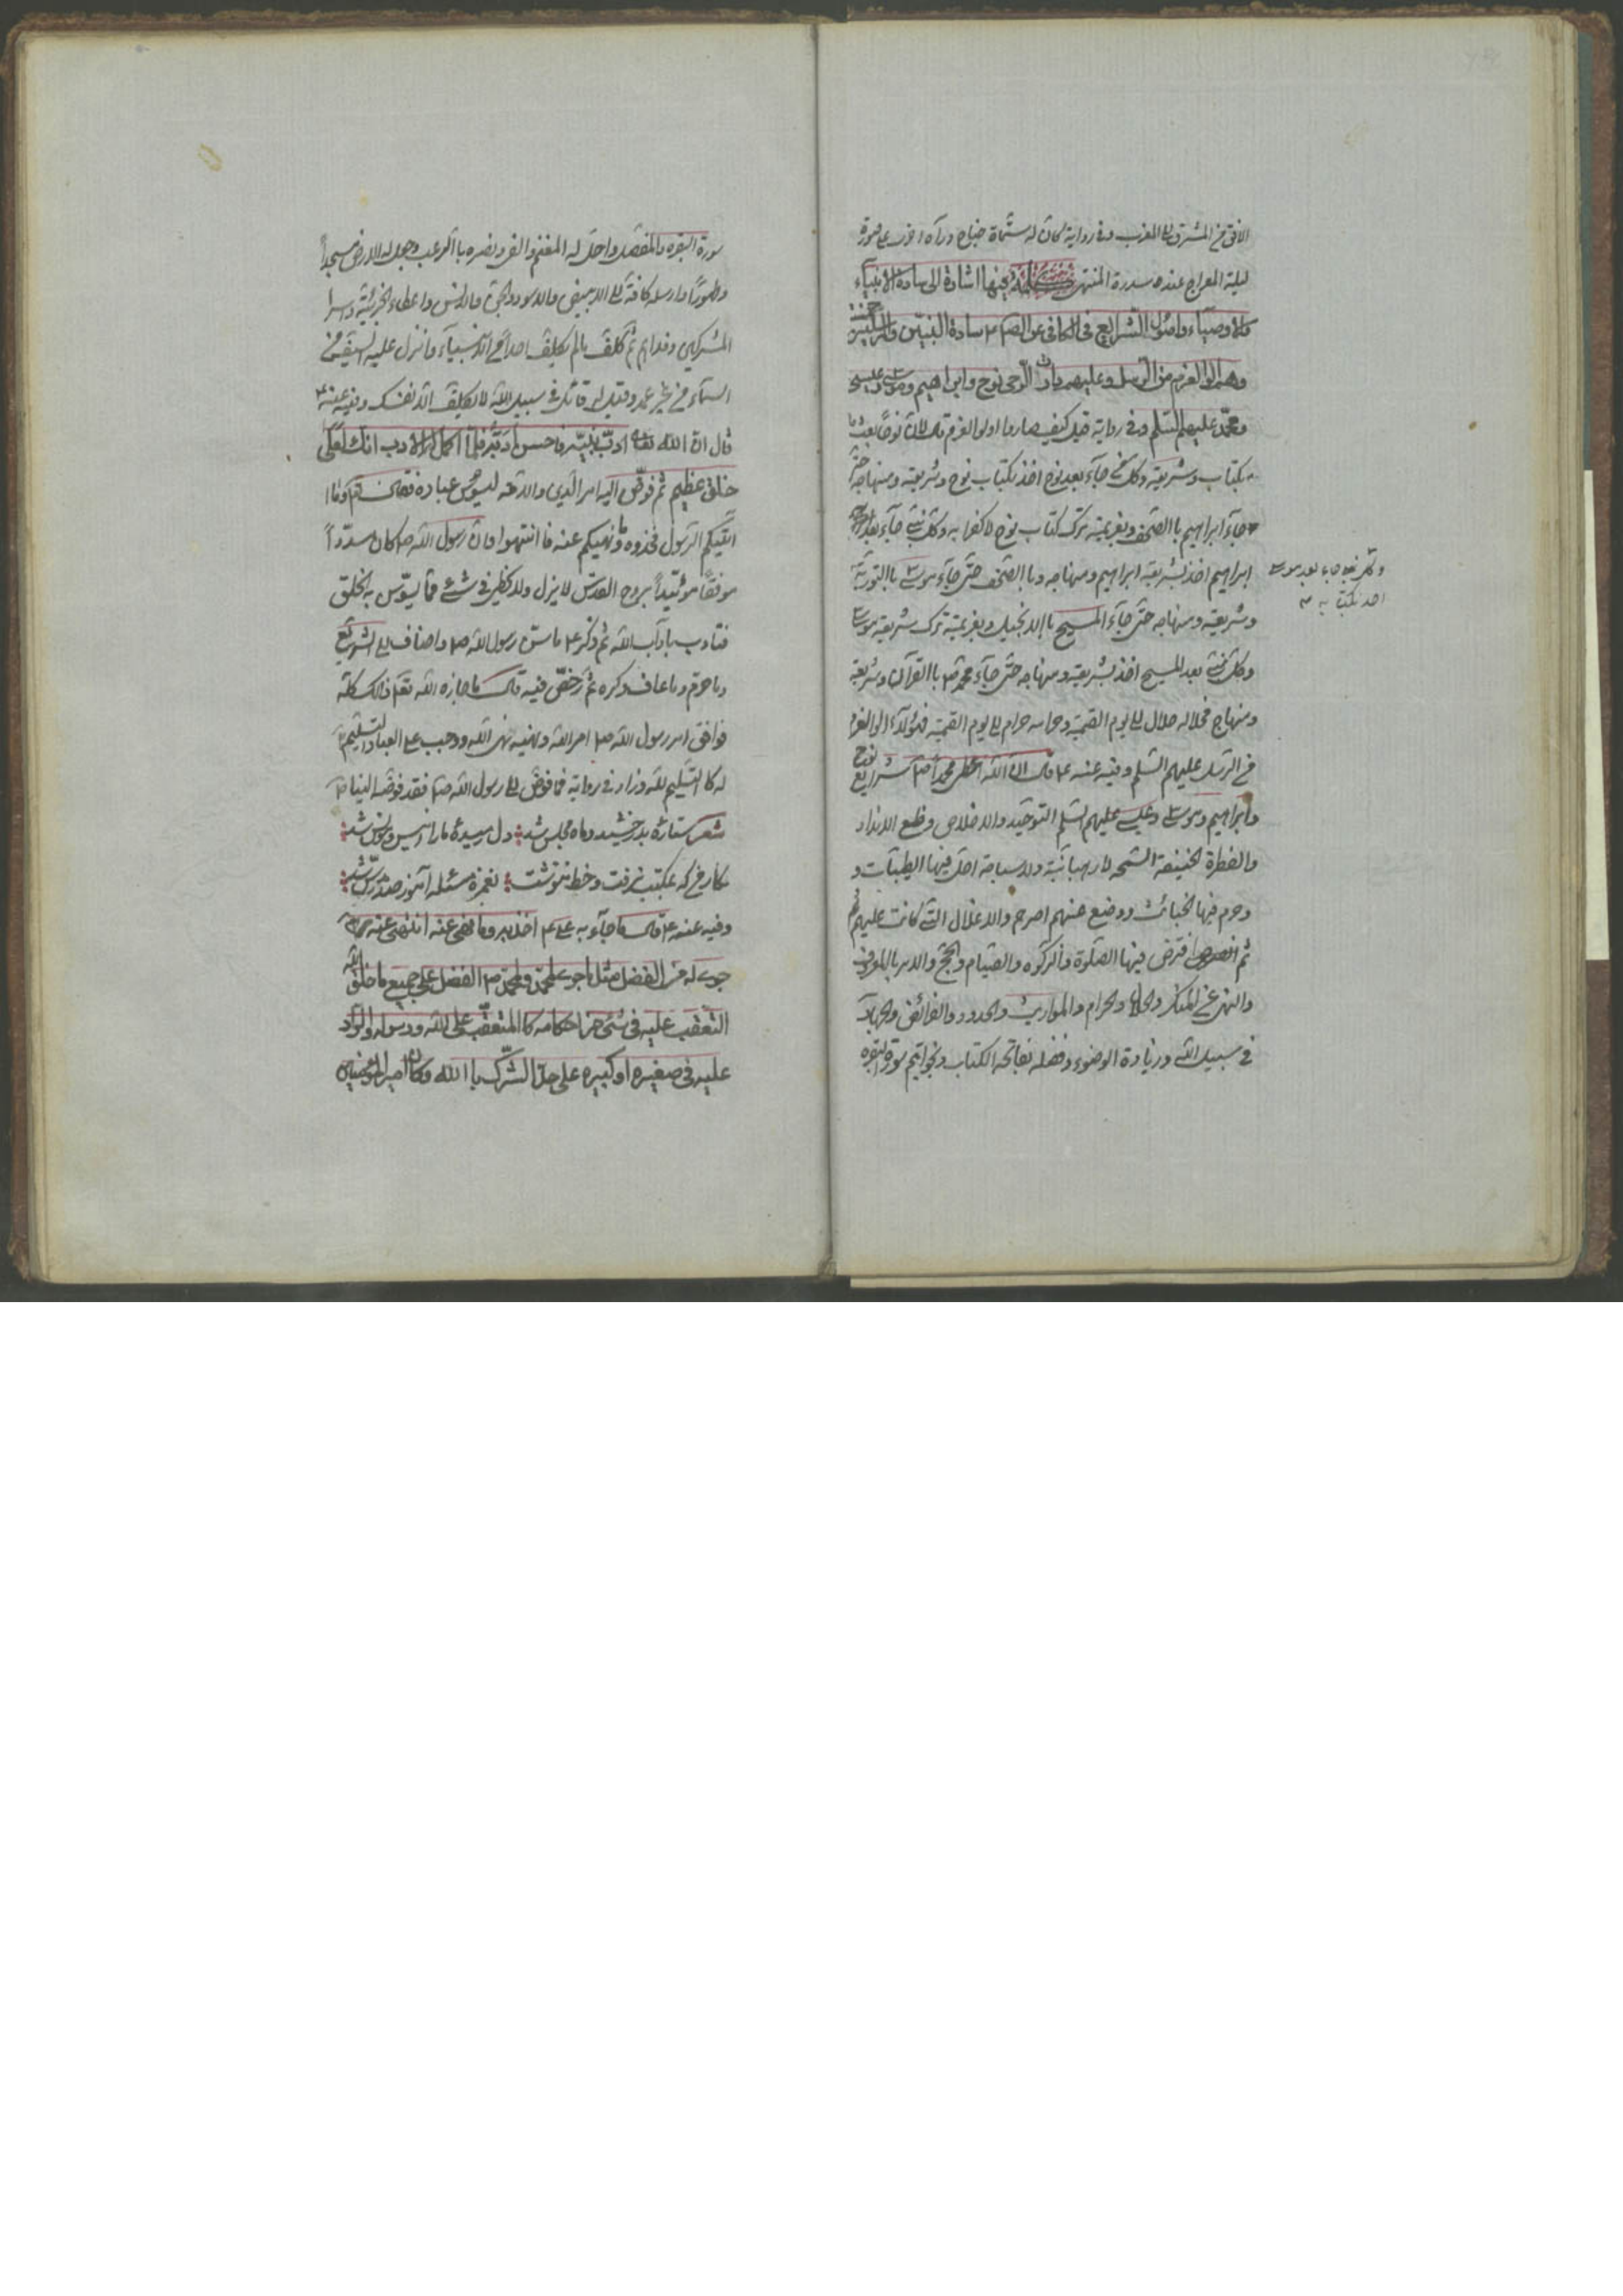 الافق من المشرق الى المغرب وفى رواية كان له ستماة جناح ورآه اخرى على صورة
ليلة المعراج عنده سدرة المنتهى كلمة فيها اشارة الى سادة الانبياء
والاوصياء واصول الشرايع فى الكافى عن الصم سادة النبيين والمرسلين خمسة
وهم اولوا العزم من الرسل وعليهم دارت الرحى نوح وابراهيم وموسى وعيسى
ومحمد عليهم السلم وفى رواية قيل كيف صاروا اولوا العزم قال لان نوحا بعث
بكتاب وشريعة وكل من جآء بعد نوح اخذ بكتاب نوح وشريعته ومنهاجه حتى
جآء ابراهيم باالصحف وبعزيمة ترك كتاب نوح لا كفرا به وكل نبى جآء بعد
ابراهيم اخذ بشريعة ابراهيم ومنهاجه وباالصحف حتى جآء موسى باالتورية
وشريعته ومنهاجه حتى جآء المسيح باالانجيل وبعزيمة ترك شريعة موسى
وكل نبى بعد المسيح اخذ بشريعته ومنهاجه حتى جآء محمد ص باالقرآن وشريعة
ومنهاج فحلاله حلال الى يوم القيمة وحرامه حرام الى يوم القيمة فهؤلآء اولوا العزم
من الرسل عليهم السلم وفيه عنه ع قال ان الله اعطى محمدا ص شرايع نوح
وابراهيم وموسى وعيسى عليهم السلم التوحيد والاخلاص وخلع الانداد
والفطرة الحنيفة السمحه لا رهبانية ولا سياحة احل فيها الطيبات و
وحرم فيها الخبائث ووضع عنهم اصرهم والاغلال التى كانت عليهم
ثم افترض فيها الصلوة والزكوة والصيام والحج والامر باالمعروف
والنهى عن المنكر والحلال والحرام والمواريث والحدود والفرائض والجهاد
فى سبيل الله وزيادة الوضوء وفضله بفاتحة الكتاب وبخواتيم سورة البقره
وكل نبى جاء بعد موسى
اخذ بكتابه
سورة البقره والمفصل واحل له المغنم والفى ونصره باالرعب وجعل له الارض مسجداً
وطهورًا وارسله كافة الى الابيض والاسود والجن والانس واعطاه الجزية واسر
المشركين وفداهم ثم كلف مالم يكلف احد من الانبيآء وانزل عليه سيف من
السمآء فى غير غمد وقيل له قاتل فى سبيل الله لا تكلف الا نفسك وفيه عنه ع
قال ان الله ادب نبيه فاحسن ادبه فلما اكمل له الادب قال انك لعلى
خلق عظيم ثم فوض اليه امر الدين والامة ليسوس عباده فقال وما
اتيكم الرسول فخذوه وما نهيكم عنه فا انتهوا وان رسول الله ص كان مسدّداً
موفقًا موئيّداً بروح القدس لا يزل ولا يخطى فى شى مما يسوس به الخلق
فتادب بآداب الله ثم ذكر ع ما سن رسول الله ص واضاف الى الشرايع
وما حرم وما عاف وكره ثم رخص فيه قال فاجازه الله تعا ذلك كله
فوافق امر رسول الله ص امر الله ونهيه نهى الله ووجب على العباد التسليم
له كا التسليم لله وزاد فى رواية فما فوض الى رسول الله ص فقد فوضه الينا
شعر ستارۀ بدرخشيد وماه مجلس شد دل رميدۀ ما را انيس ومونس شد
نكار من كه بمكتب نرفت وخط ننوشت بغمزه مسئله آموز صد مدرس شد
وفيه عنه ع قال ما جآء به على ع اخذ به وما نهى عنه انتهى عنه
جرى له من الفضل مثل ما جرى لمحمد ولمحمد ص الفضل على جميع ما خلق الله
المتعقب عليه فى شى من احكامه كا المتعقب على الله ورسوله والراد
عليه فى صغيره او كبيره على حد الشرك باالله وكان امير المؤمنين